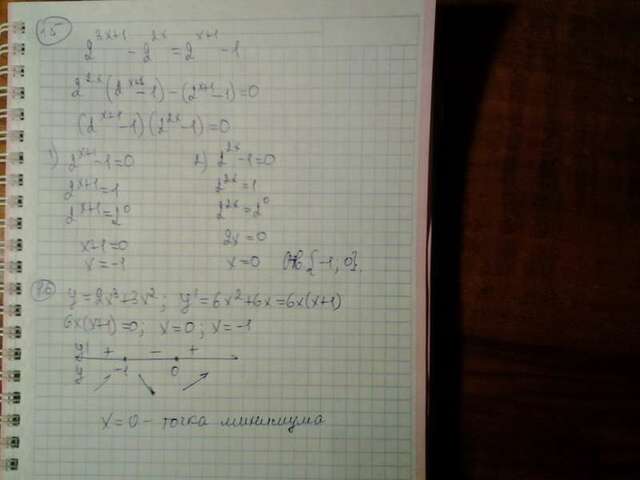 15
2^{3x+1} - 2^{2x} = 2^{x+1} - 1
2^{2x}(2^{x+1} - 1) - (2^{x+1} - 1) = 0
(2^{x+1} - 1)(2^{2x} - 1) = 0
1) 2^{x+1} - 1 = 0 2) 2^{2x} - 1 = 0
2^{x+1} = 1 2^{2x} = 1
2^{x+1} = 2^0 2^{2x} = 2^0
x+1 = 0 2x = 0
x = -1 x = 0 {-1, 0}.
y = 2x^3 + 3x^2; y' = 6x^2 + 6x = 6x(x+1)
6x(x+1) = 0; x = 0; x = -1
y' + - +
y -1 0
x = 0 - точка минимума